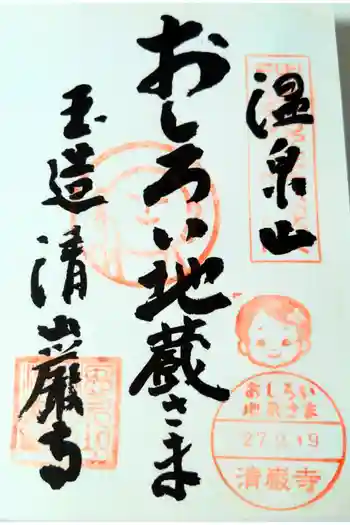 温泉山
おしろい地蔵さま
玉造 清巌寺
おしろい
地蔵さま
清巌寺